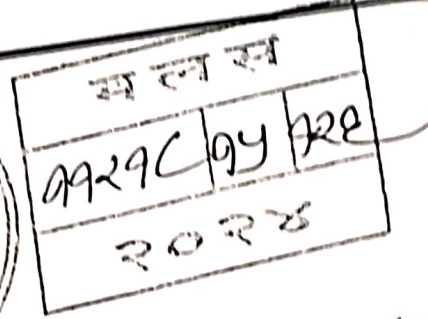 स ल स
११२१८ १५ १२९
२०२४